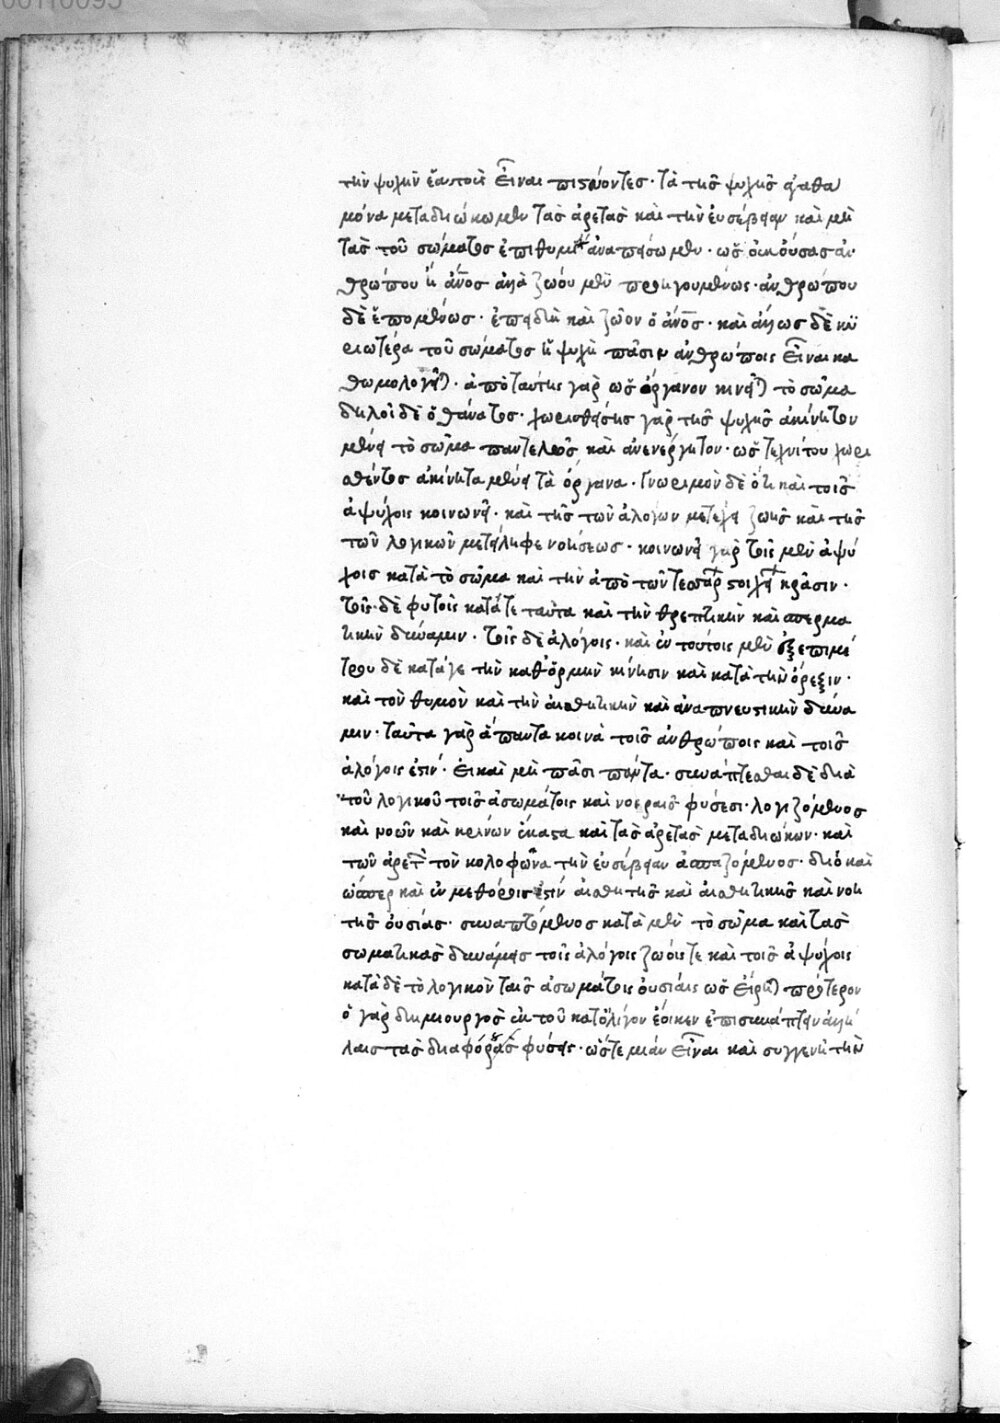 00110095
την ψυχὴν ἑαυτοὺς εἶναι πιστεύοντες· τὰ τῆς ψυχῆς ἀγαθὰ
μόνα μεταδιώκωμεν τὰς ἀρετὰς καὶ τὴν εὐσέβειαν καὶ μὴ
τὰς τοῦ σώματος ἐπιθυμίας ἀγαπήσωμεν· ὡς οὐκ οὔσας ἀν
θρώπου ᾗ ἄνος ἀλλὰ ζώου μὲν προηγουμένως· ἀνθρώπου
δὲ ἑπομένως· ἐπειδὴ καὶ ζῶον ὁ ἄνος· καὶ ἄλλως δὲ κυ
ριωτέρα τοῦ σώματος ἡ ψυχὴ πᾶσιν ἀνθρώποις εἶναι κα
θωμολογεῖται· ἀπὸ ταύτης γὰρ ὡς ὄργανον κινεῖται τὸ σῶμα
δηλοῖ δὲ ὁ θάνατος· χωρισθείσης γὰρ τῆς ψυχῆς ἀκίνητον
μένει τὸ σῶμα παντελῶς καὶ ἀνενέργητον· ὡς τεχνίτου χωρι
σθέντος ἀκίνητα μένει τὰ ὄργανα· Γνώριμον δὲ ὅτι καὶ τοῖς
ἀψύχοις κοινωνεῖ· καὶ τῆς τῶν ἀλόγων μετέχει ζωῆς καὶ τῆς
τῶν λογικῶν μετείληφε νοήσεως· κοινωνεῖ γὰρ τοῖς μὲν ἀψύ
χοις κατὰ τὸ σῶμα καὶ τὴν ἀπὸ τῶν τεσσάρων στοιχείων κρᾶσιν·
τοῖς δὲ φυτοῖς κατά τε ταῦτα καὶ τὴν θρεπτικὴν καὶ σπερμα
τικὴν δύναμιν· τοῖς δὲ ἀλόγοις· καὶ ἐν τούτοις μὲν ἐξ ἐπιμέ
τρου δὲ κατά γε τὴν καθ᾽ ὁρμὴν κίνησιν καὶ κατὰ τὴν ὄρεξιν·
καὶ τὸν θυμὸν καὶ τὴν αἰσθητικὴν καὶ ἀναπνευστικὴν δύνα
μιν· ταῦτα γὰρ ἅπαντα κοινὰ τοῖς ἀνθρώποις καὶ τοῖς
ἀλόγοις ἐστίν· εἰ καὶ μὴ πᾶσι πάντα· συνάπτεσθαι δὲ διὰ
τοῦ λογικοῦ τοῖς ἀσωμάτοις καὶ νοεραῖς φύσεσι· λογιζόμενος
καὶ νοῶν καὶ κρίνων ἕκαστα καὶ τὰς ἀρετὰς μεταδιώκων· καὶ
τῶν ἀρετῶν τὸν κολοφῶνα τὴν εὐσέβειαν ἀσπαζόμενος· διὸ καὶ
ὥσπερ καὶ ἐν μεθορίοις ἐστὶν αἰσθητῆς καὶ αἰσθητικῆς καὶ νοη
τῆς οὐσίας· συναπτόμενος κατὰ μὲν τὸ σῶμα καὶ τὰς
σωματικὰς δυνάμεις τοῖς ἀλόγοις ζώοις τε καὶ τοῖς ἀψύχοις
κατὰ δὲ τὸ λογικὸν ταῖς ἀσωμάτοις οὐσίαις ὡς εἴρηται πρότερον
ὁ γὰρ δημιουργὸς ἐκ τοῦ κατ᾽ ὀλίγον ἔοικεν ἐπισυνάπτειν ἀλλή
λαις τὰς διαφόρους φύσεις· ὥστε μίαν εἶναι καὶ συγγενῆ τὴν